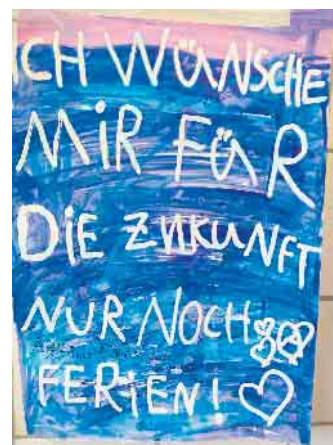 ICH WÜNSCHE
MIR FÜR
DIE ZUKUNFT
NUR NOCH
FERIEN!